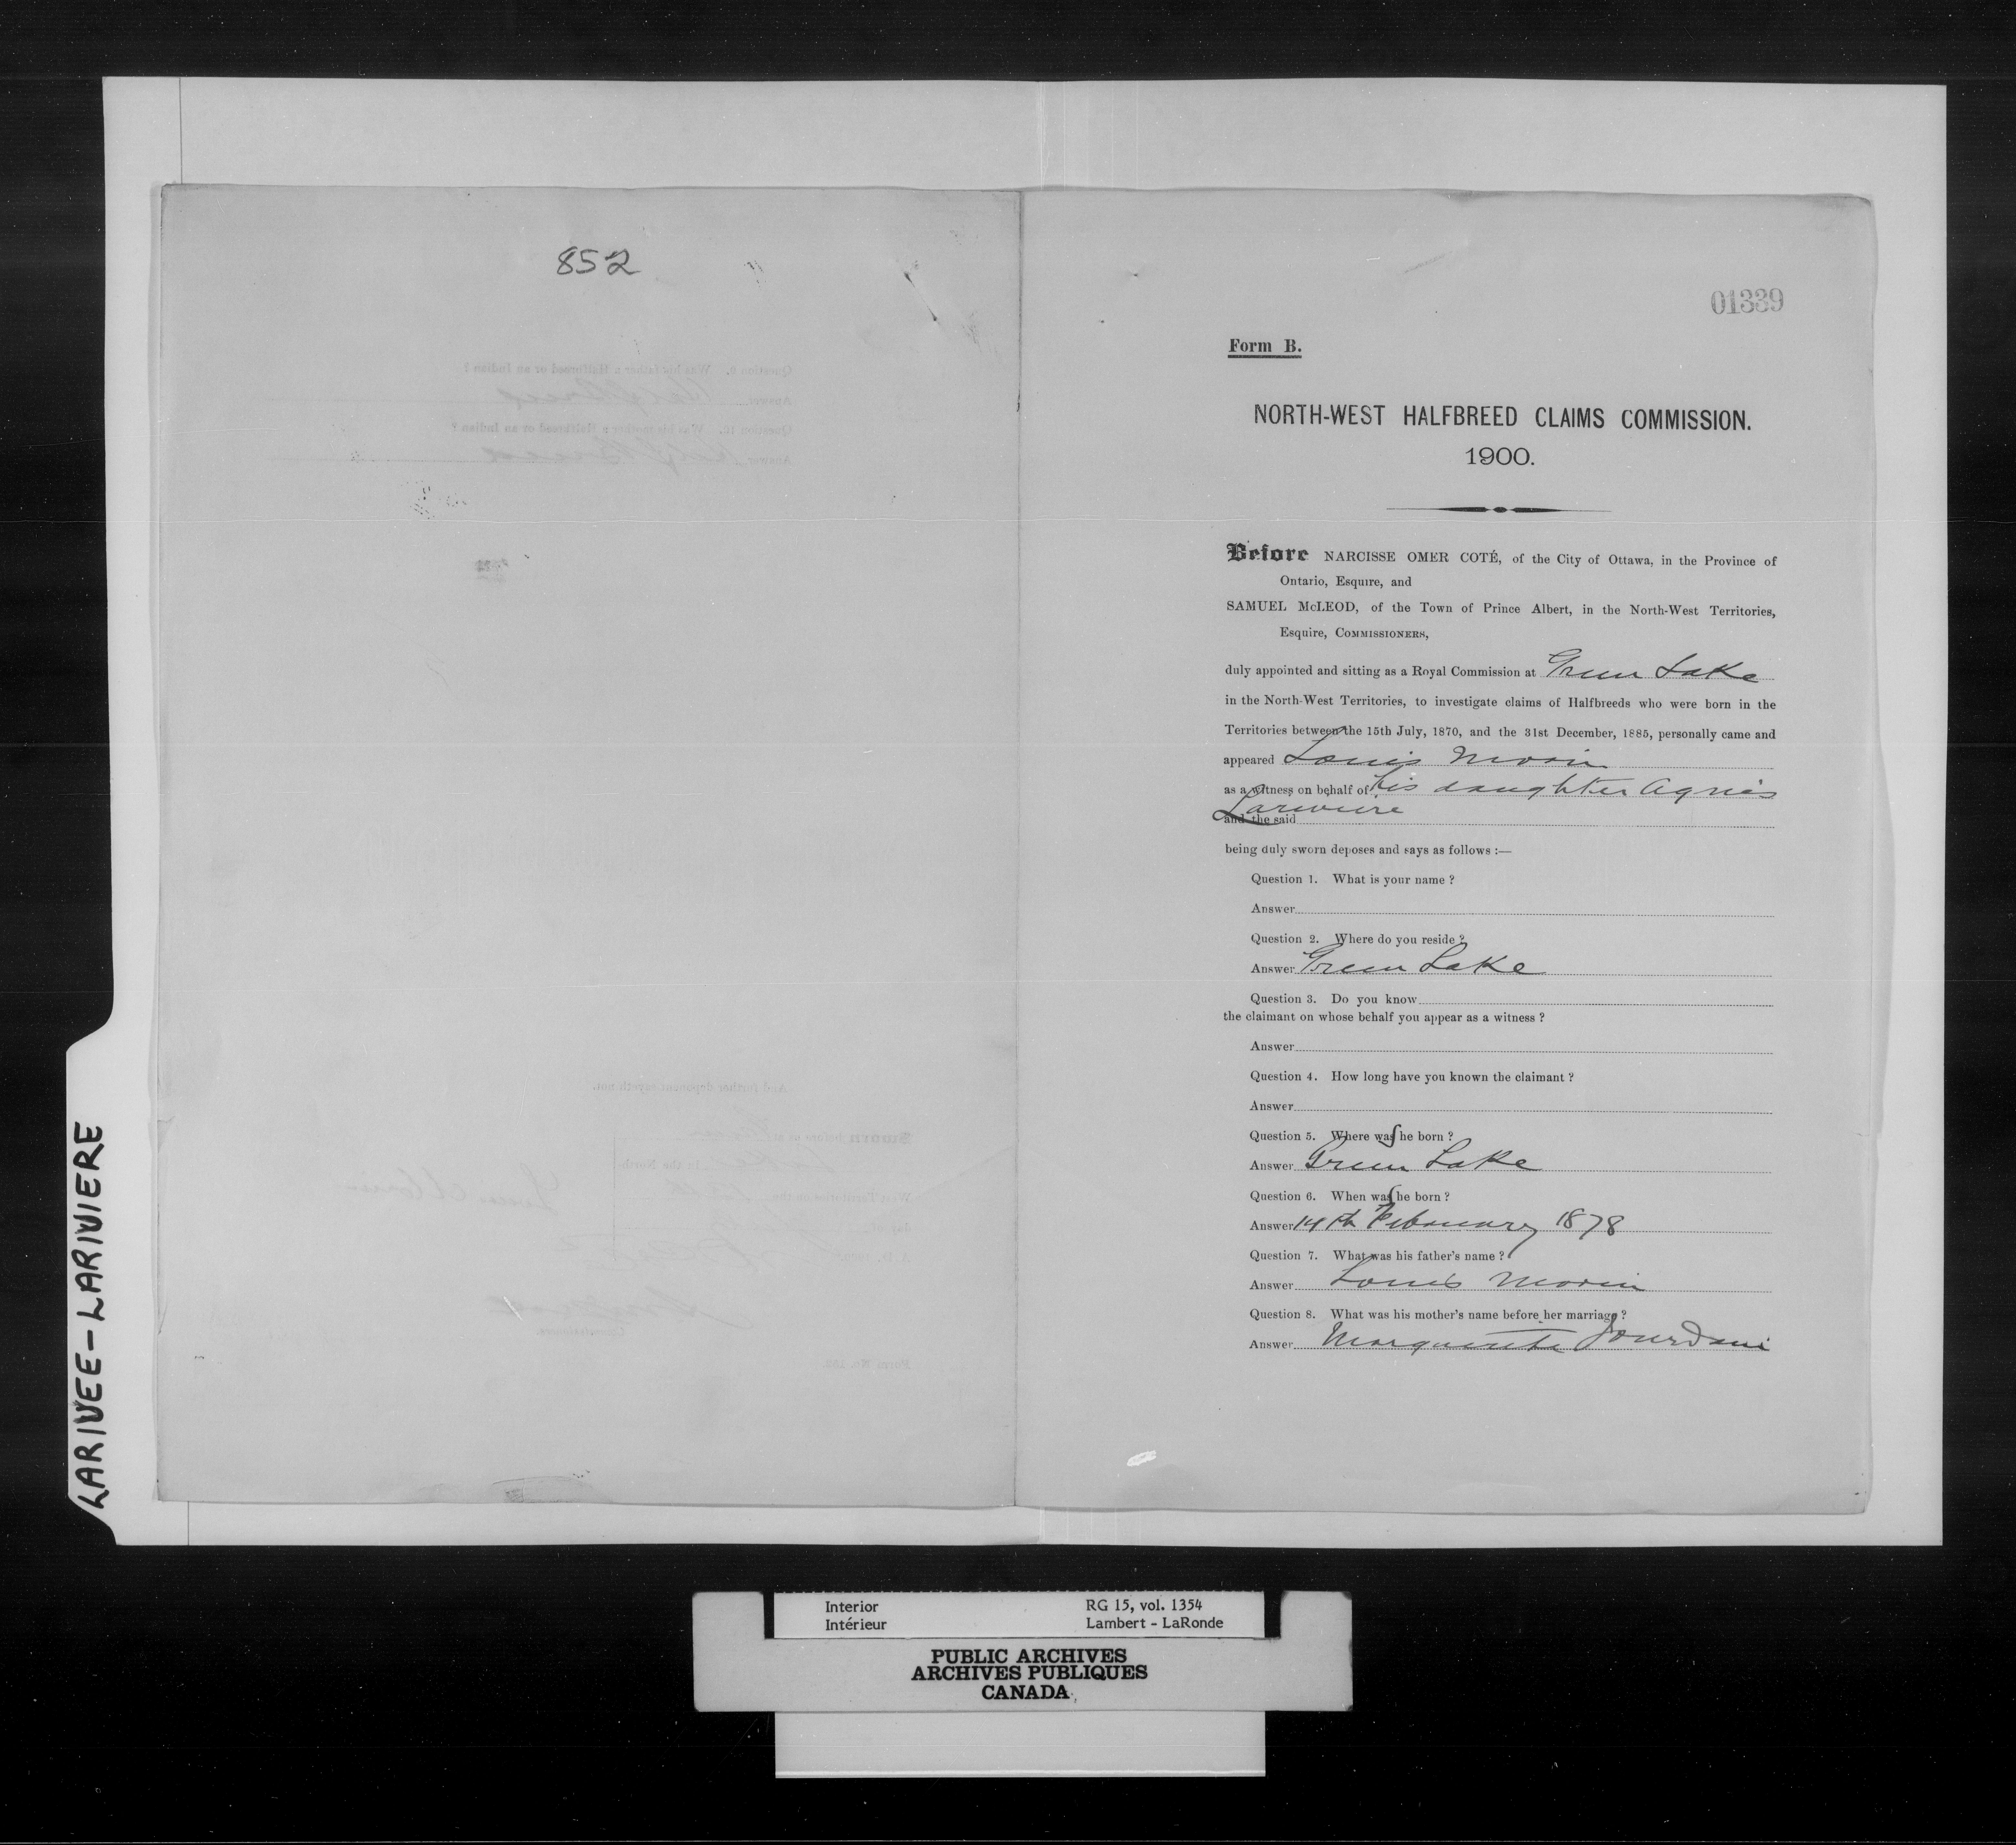 852
01339
Form B.
NORTH-WEST HALFBREED CLAIMS COMMISSION.
1900.
Before NARCISSE OMER COTÉ, of the City of Ottawa, in the Province of
Ontario, Esquire, and
SAMUEL McLEOD, of the Town of Prince Albert, in the North-West Territories,
Esquire, COMMISSIONERS,
duly appointed and sitting as a Royal Commission at Green Lake
in the North-West Territories, to investigate claims of Halfbreeds who were born in the
Territories between the 15th July, 1870, and the 31st December, 1885, personally came and
appeared Louis Morin
as a witness on behalf of his daughter Agnes
Lariviere
and the said
being duly sworn deposes and says as follows :—
Question 1. What is your name ?
Answer
Question 2. Where do you reside ?
Answer Green Lake
Question 3. Do you know
the claimant on whose behalf you appear as a witness ?
Answer
Question 4. How long have you known the claimant ?
Answer
Question 5. Where was she born ?
Answer Green Lake
Question 6. When was she born ?
Answer 14th February 1878
Question 7. What was his father's name ?
Answer Louis Morin
Question 8. What was his mother's name before her marriage ?
Answer Marguerite Jourdain
LARIVEE-LARIVIERE
Interior RG 15, vol. 1354
Intérieur Lambert - LaRonde
PUBLIC ARCHIVES
ARCHIVES PUBLIQUES
CANADA